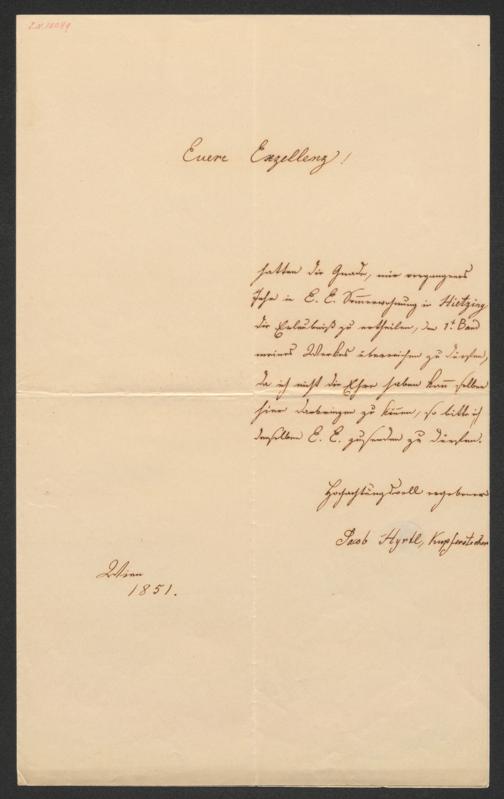 I.N. 18049
Euere Exzellenz!
hatten die Gnade, mir vergangenes
Jahr in E. E. Sommerwohnung in Hietzing
die Erlaubniß zu ertheilen, den 1t. Band
meines Werkes überreichen zu dürfen,
da ich nicht die Ehre haben kann selben
hier darbringen zu können, so bitte ich
denselben E. E. zusenden zu dürfen.
Hochachtungsvoll ergebener
Jacob Hyrtl, Kupferstecher
Wien
1851.